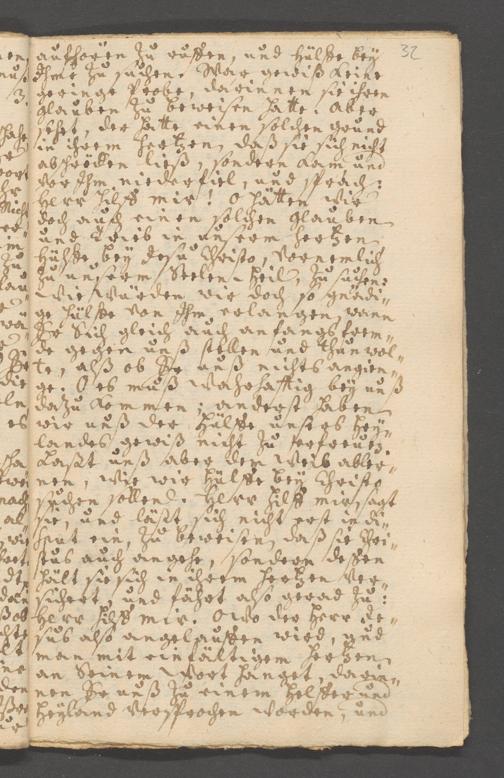 32
aufhören zu ruffen, und Hülffe bey
Ihme zu suchen. War gewiß keine
geringe Probe, darinnen sie ihren
glauben zu beweisen hatte. Aber
sehet, der hatte einen solchen grund
in ihrem Hertzen, daß sie sich nicht
abschröcken ließ, sondern kam und
vor Ihm niederfiel, und sprach:
Herr hilff mir! O hätten wir
doch auch einen solchen glauben
und Trieb in unserm Hertzen
Hülffe bey Jesu Christo, vornemlich
zu unserm Seelen Heil, zu suchen:
wie würden wir doch so gnädi-
ge Hülffe von Ihm erlangen, wann
Er Sich gleich auch anfangs frem-
de gegen unß stellen und thun wol-
te, alß ob Er unß nichts angien-
ge. O es muß wahrhafftig bey unß
dazu kommen: anderst haben
wir unß der Hülffe unsers Hey-
landes gewiß nicht zu erfreuen.
Laßt unß aber dem Weib abler-
nen, wie wir Hülffe bey Christo
suchen sollen. Herr hilff mir, sagt
sie, und läßt sich nicht erst in di-
sput ein, zu beweisen, daß sie Chri-
stus auch angehe, sondern dessen
hält sie sich in ihrem Hertzen ver-
sichert, und fährt also gerad zu:
Herr hilff mir. O wo der Herr Je-
sus also angelauffen wird, und
man mit einfältigem Hertzen
an Seinem Wort hanget, darin-
nen Er unß zu einem Helffer und
Heyland versprochen worden, und